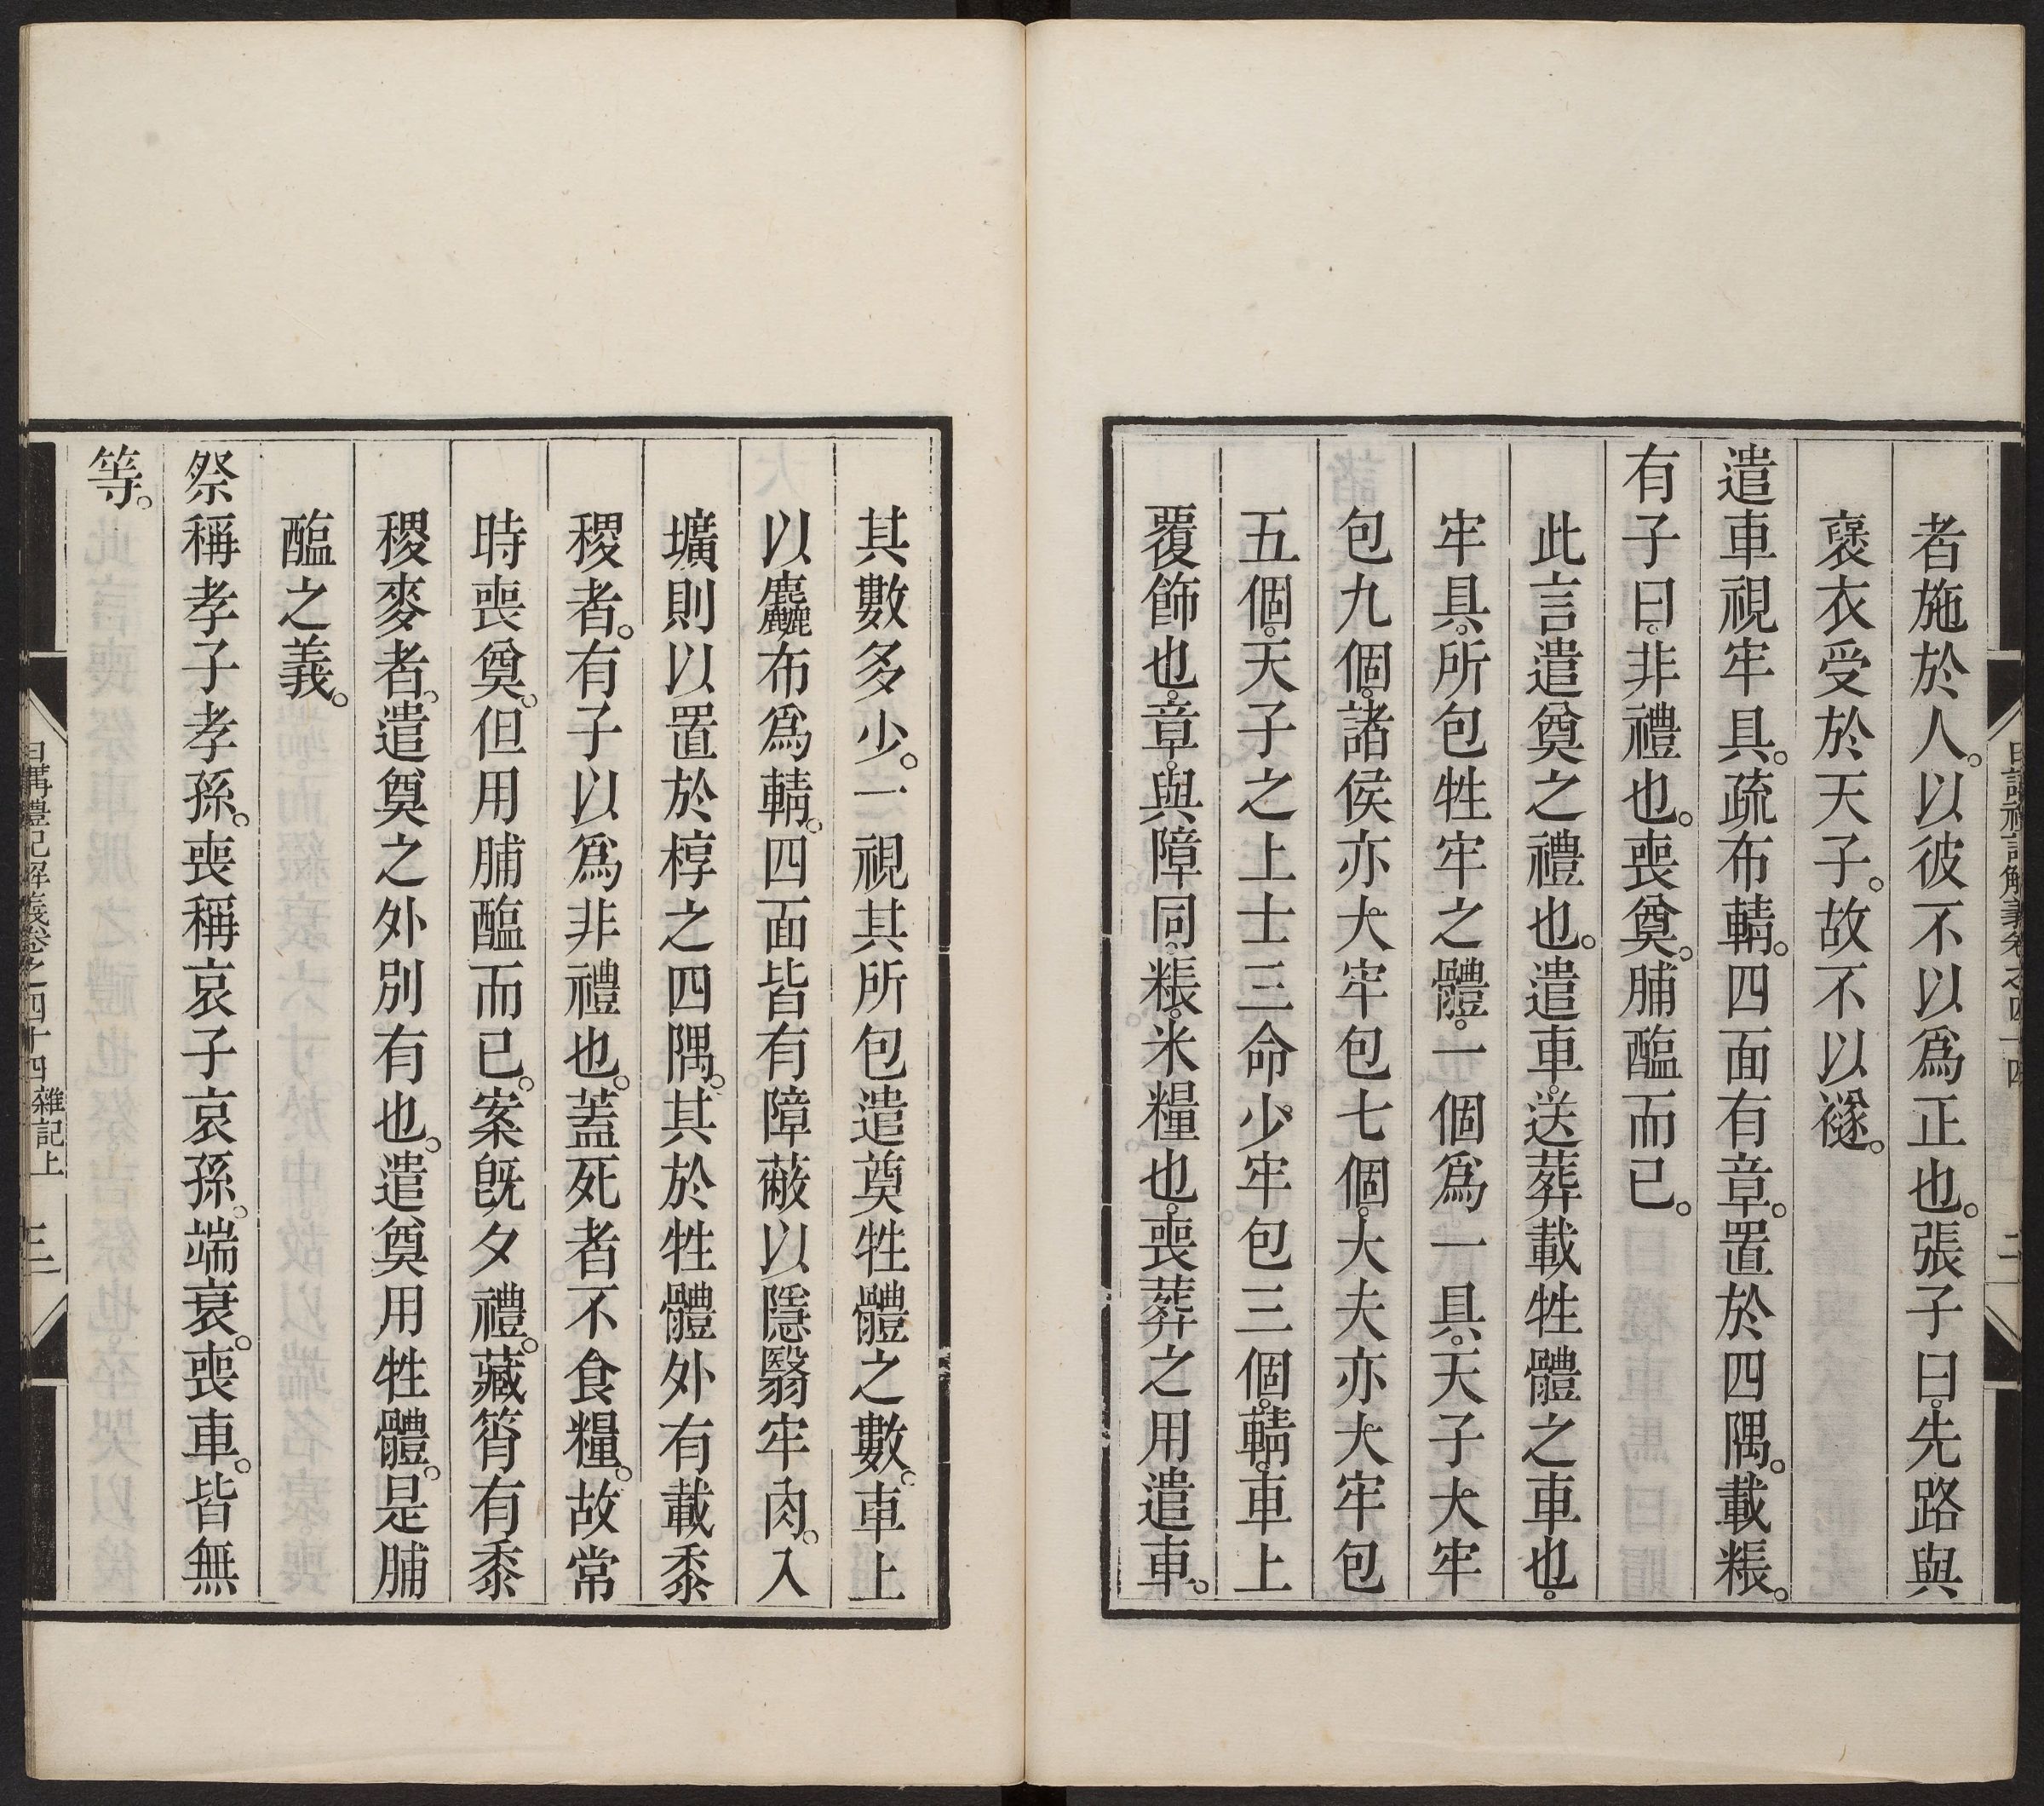 者施於人。以彼不以爲正也。張子曰。先路與
襃衣受於天子。故不以襚。
遣車視牢具。疏布輤。四面有章。置於四隅。載粻。
有子曰。非禮也。喪奠。脯醢而已。
此言遣奠之禮也。遣車。送葬載牲體之車也。
牢具。所包牲牢之體。一個爲一具。天子大牢
包九個。諸侯亦大牢包七個。大夫亦大牢包
五個。天子之上士三命。少牢包三個。輤。車上
覆飾也。章。與障同。粻。米糧也。喪葬之用遣車。
日講禮記解義卷之四十四
二
其數多少。一視其所包遣奠牲體之數。車上
以麤布爲輤。四面皆有障蔽以隱翳牢肉。入
壙則以置於椁之四隅。其於牲體外有載黍
稷者。有子以爲非禮也。蓋死者不食糧。故常
時喪奠。但用脯醢而已。案旣夕禮。藏筲有黍
稷麥者。遣奠之外別有也。遣奠用牲體。是脯
醢之義。
祭稱孝子孝孫。喪稱哀子哀孫。端衰。喪車。皆無
等。
日講禮記解義卷之四十四 雜記上 三